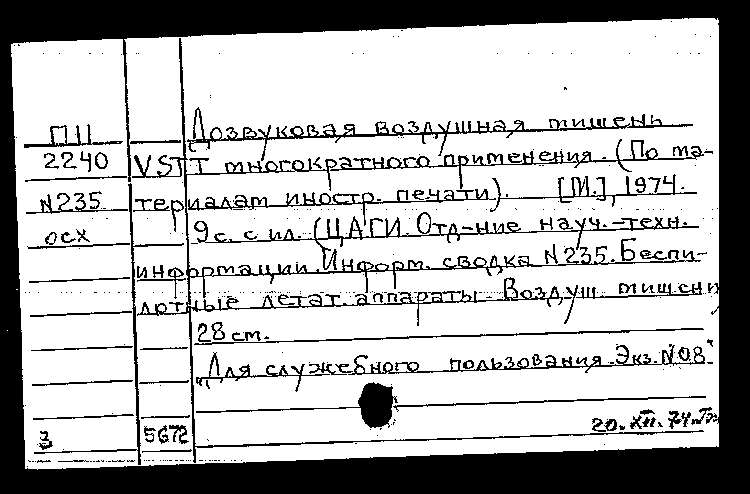 Дозвуковая воздушная мишень
П11
2240 VSTT многократного применения. (По ма-
N235 териалам иностр. печати). [М.], 1974.
осх 9с. с ил. (ЦАГИ. Отд-ние науч.-техн.
информации. Информ. сводка N235. Беспи-
лотные летат. аппараты. Воздуш. мишени
28 см.
"Для служебного пользования. Экз. N08"
3 5672 20.XII.74.